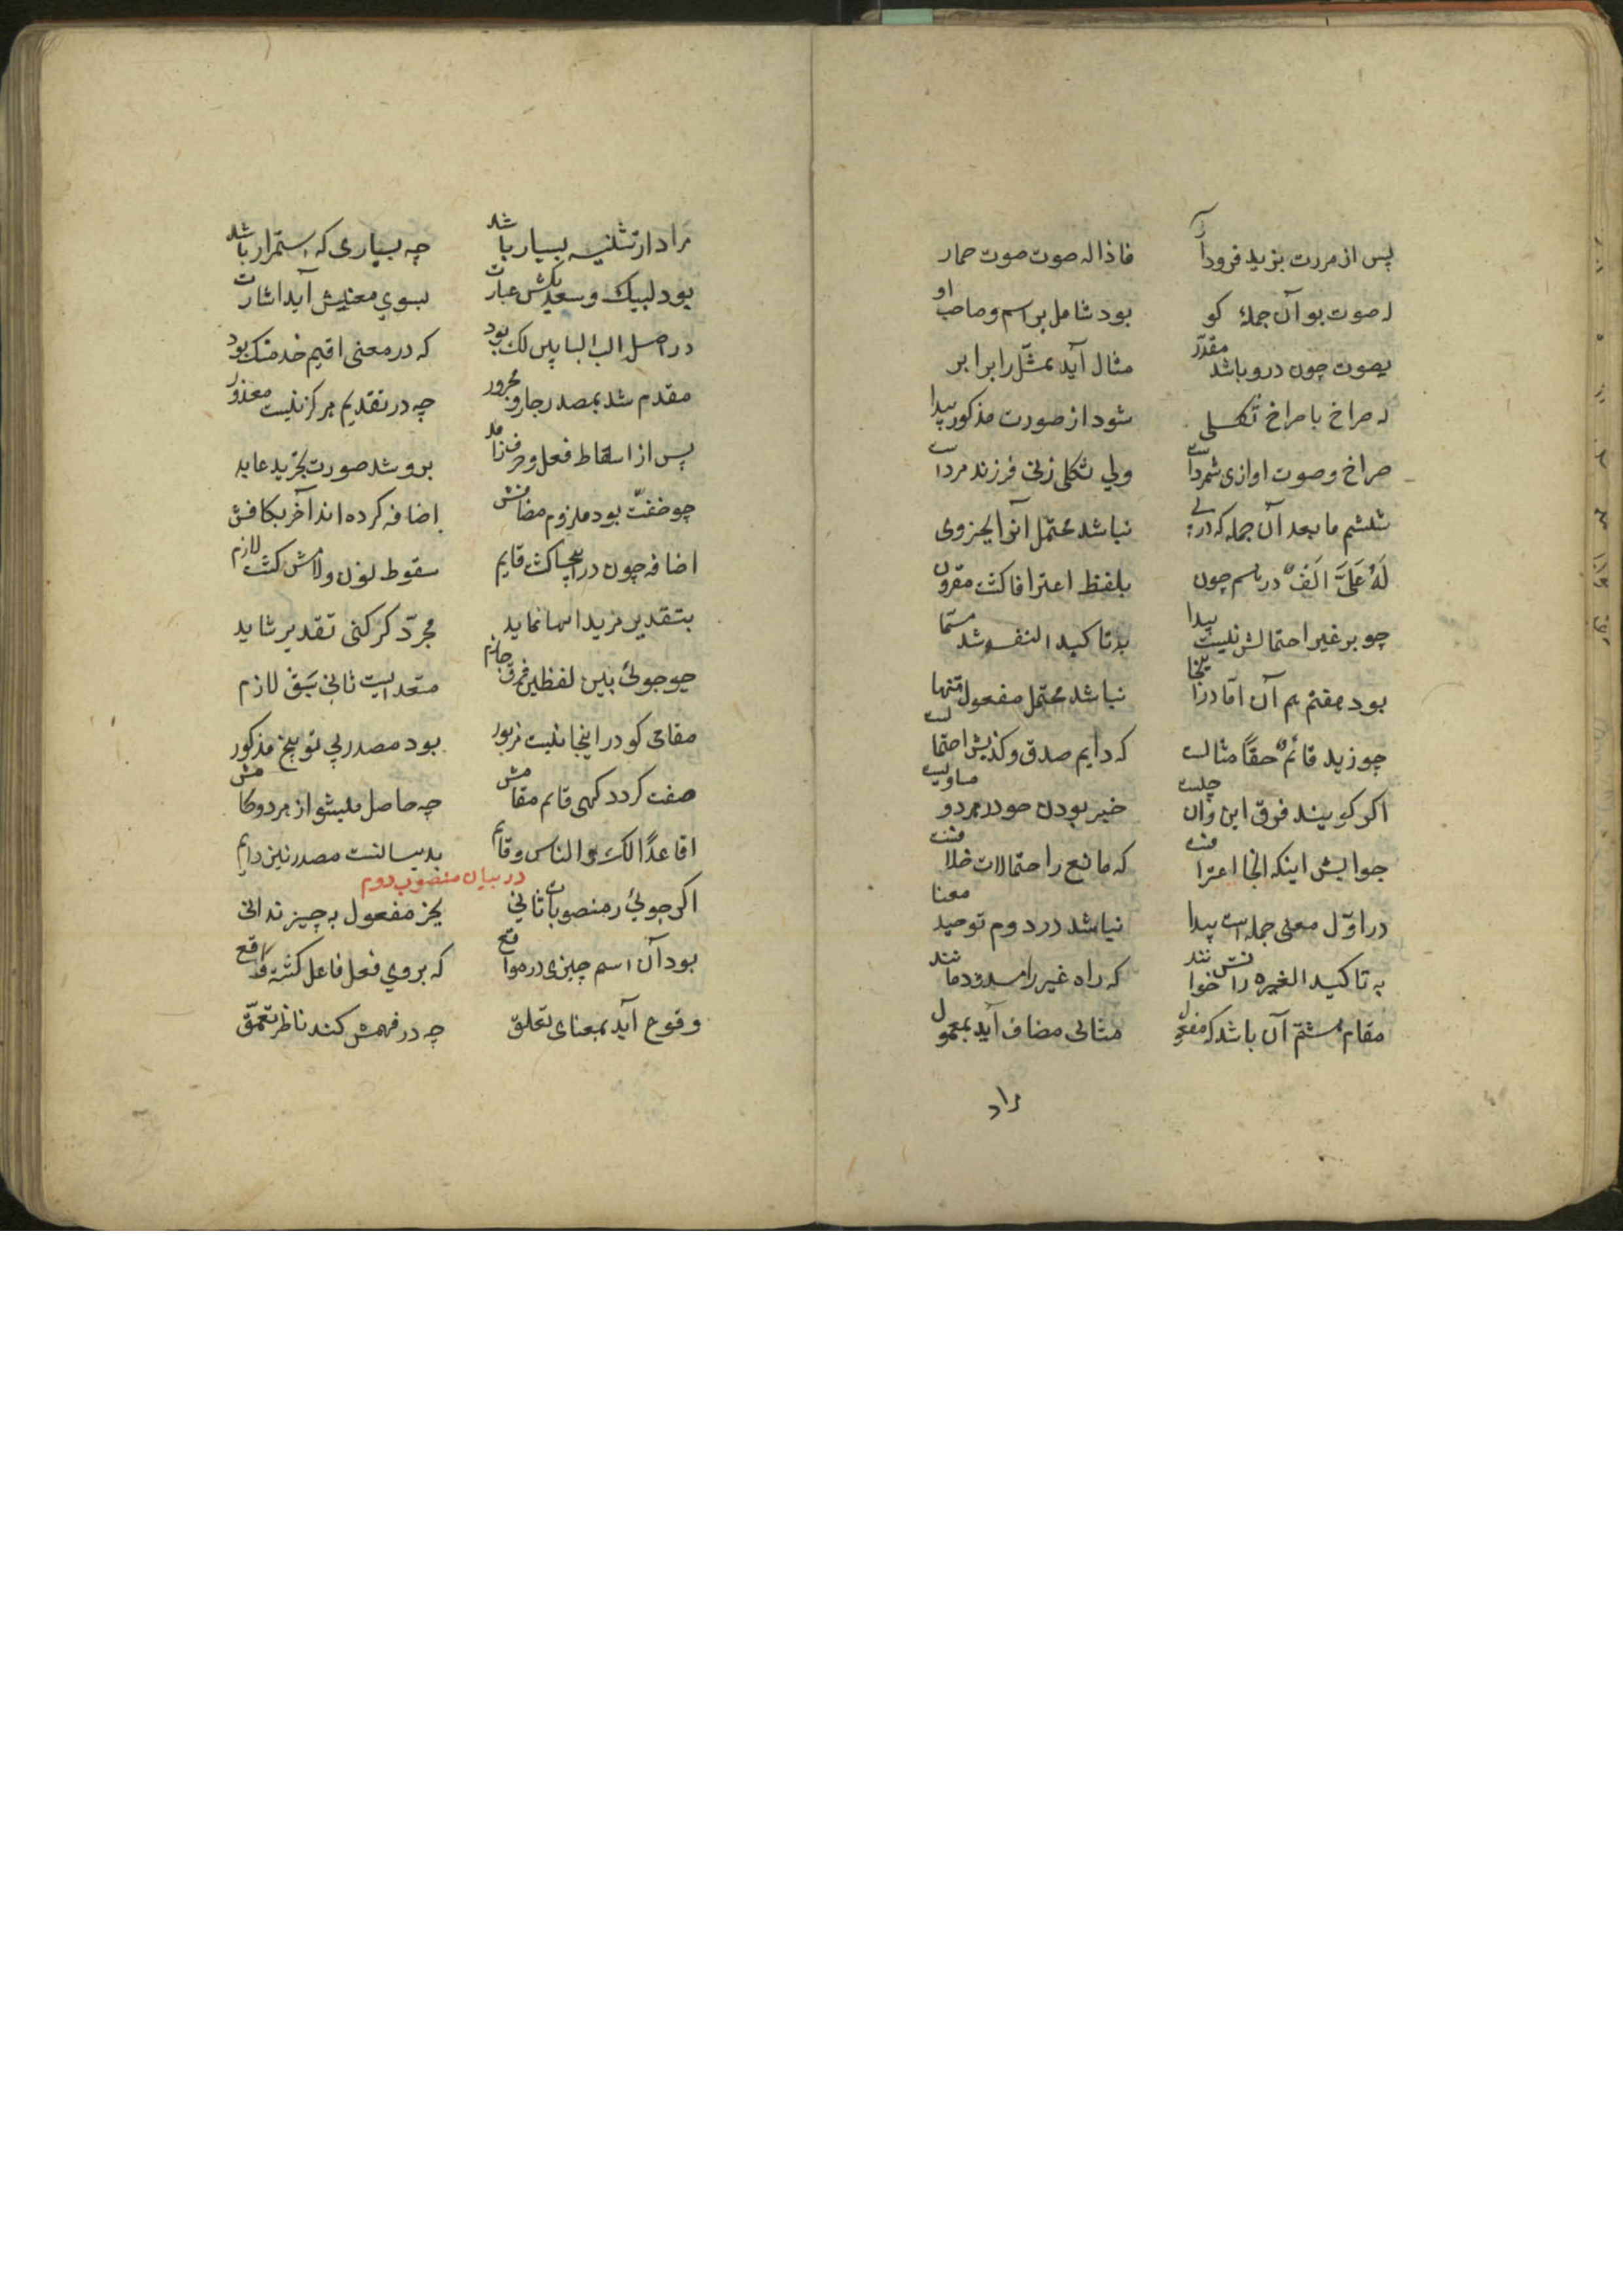 پس از مررت بزید فرود آر فاذا له صوت صوت حمار
له صوت بو آن جملهٔ کو بود شامل بر اسم و صاحب او
یصوت چون درو باشد مقدّر مثال آید ممثّل را برابر
له صراخ با صراخ ثکلی شود از صورت مذکور پیدا
صراخ و صوت اوازی شمردست ولی ثکلی زنی فرزند مردست
ششم ما بعد آن جمله که در نباشد محتمل آنرا بجز وی
لَهُ عَلَیَّ الَفٌ در باسم چون بلفظ اعترافا کشت مقرون
چو بر غیر احتمالش نیست پیدا بتاکید النفسه شد مسمّا
بود هفتم هم آن اما درینجا نباشد محتمل مفعول تنها
چو زید قائمٌ حقاً مثالست که دایم صدق و کذبش احتمالست
اکر کویند فرق این وآن چلست خبر بودن چو در هردو مساویست
جوابش اینکه انجا اعترافست که مانع را احتمالات خلافست
در اوّل معنی جمله است پیدا نباشد در دوم توحید معنا
به تاکید الغیره را خوانندش که راه غیر را مسدود مانند
مقام هشتم آن باشد که مفعول مثالی مضاف آید بمعمول
مراد
مراد از تثنیه بسیار باشد چه بسیاری که استمرار باشد
بود لبیک و سعدیکش عبارت بسوی معنیش آید اشارت
در اصل الب البابین لک بود که در معنی اقیم خدمتک بود
مقدم شد بمصدر جار و مجرور چه در تقدیم هرکز نیست معذور
پس از اسقاط فعل و حرف زاید برو شد صورت تجرید عاید
چو خفّت بود ملزوم مضافش اضافه کرده اند آخر بکافش
اضافه چون در اینجا کشت قایم سقوط نون ولامش کشت لازم
بتقدیر مزید اینها نماید مجرّد کر کنی تقدیر شاید
چو جوئی بین لفظین فرق جازم متعدیست ثانی سَبق لازم
مقامی کو در اینجا نیست مزبور بود مصدر پی توبیخ مذکور
صفت کردد کهی قایم مقامش چه حاصل میشو از هردو کامش
اقاعدًا الک والناس وقائم بدیسانست مصدر نیز دایم
در بیان منصوب دوم
اکر جوئی ز منصوبات ثانی بجز مفعول به چیز ندانی
بود آن اسم چیزی در مواقع که بروی فعل فاعل کشته واقع
وقوع آید بمعنای تعلق چه در فهمش کند ناظر تعمّق